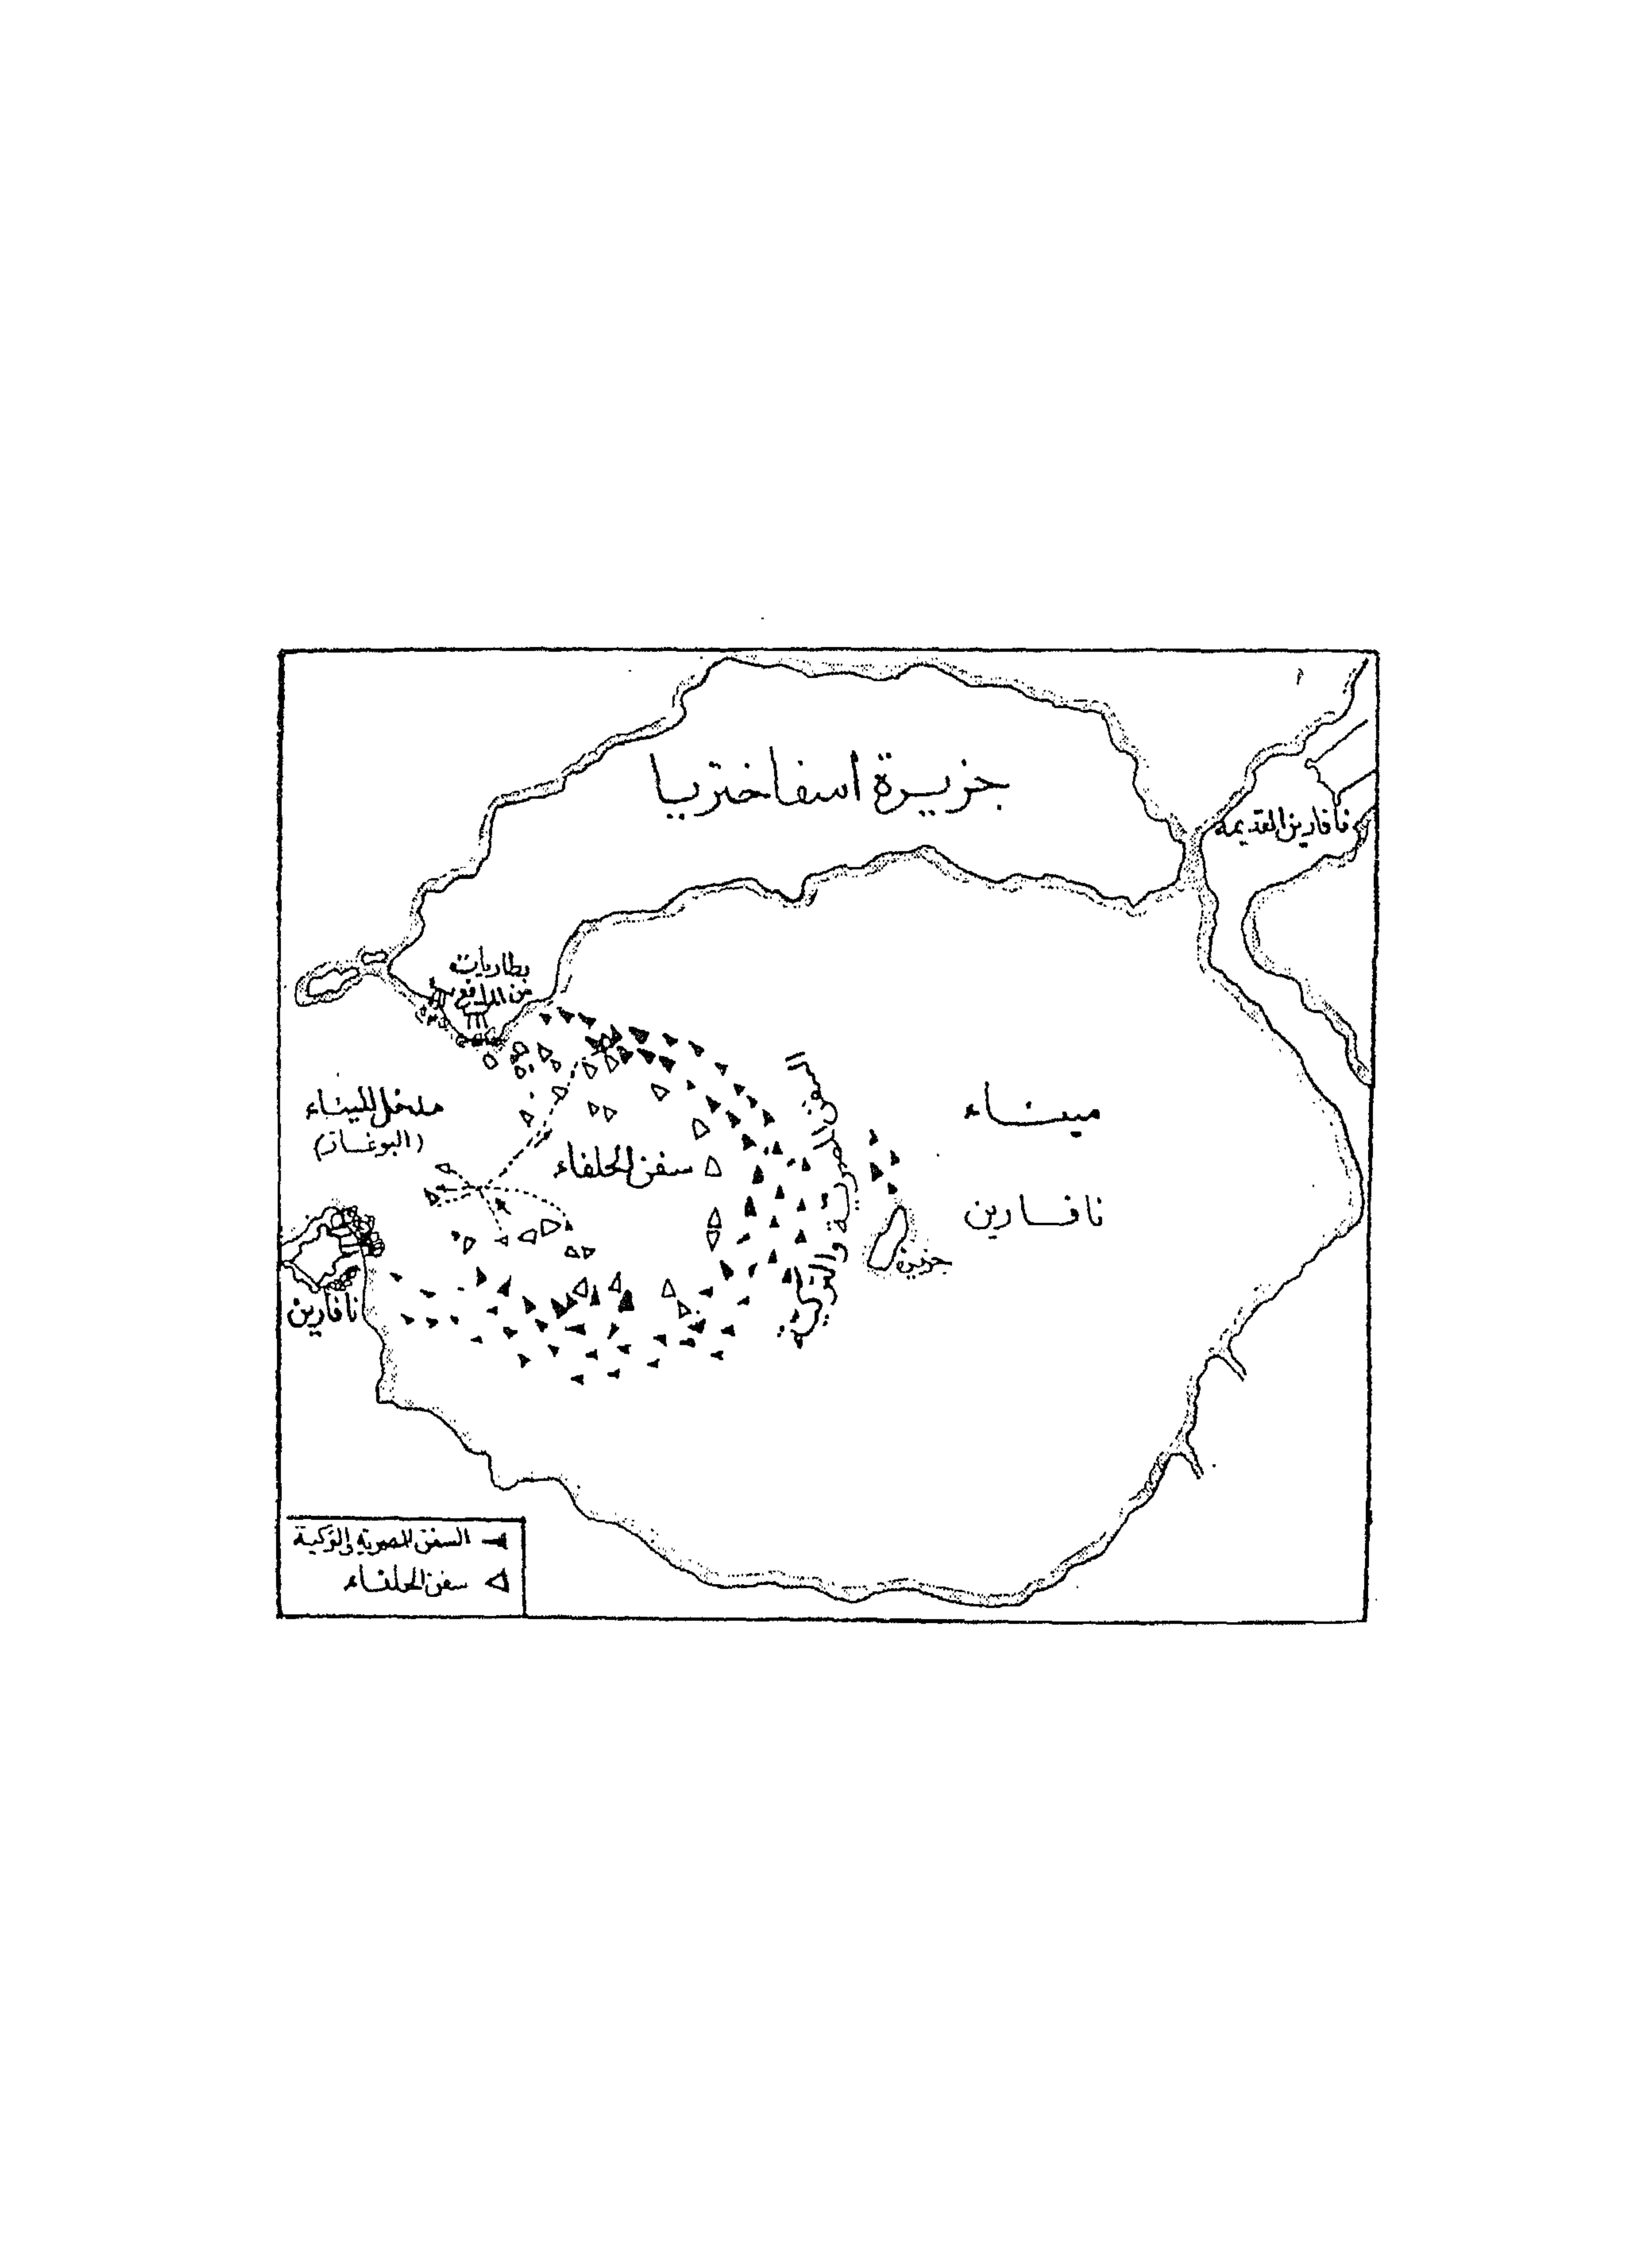 جزيرة اسفاختريا
نافارين القديمة
بطاريات
من المدافع
السفن المصرية والتركية
مدخل الميناء
(البوغاز)
سفن الحلفاء
ميناء
نافارين
جزيرة
نافارين
السفن المصرية والتركية
سفن الحلفاء